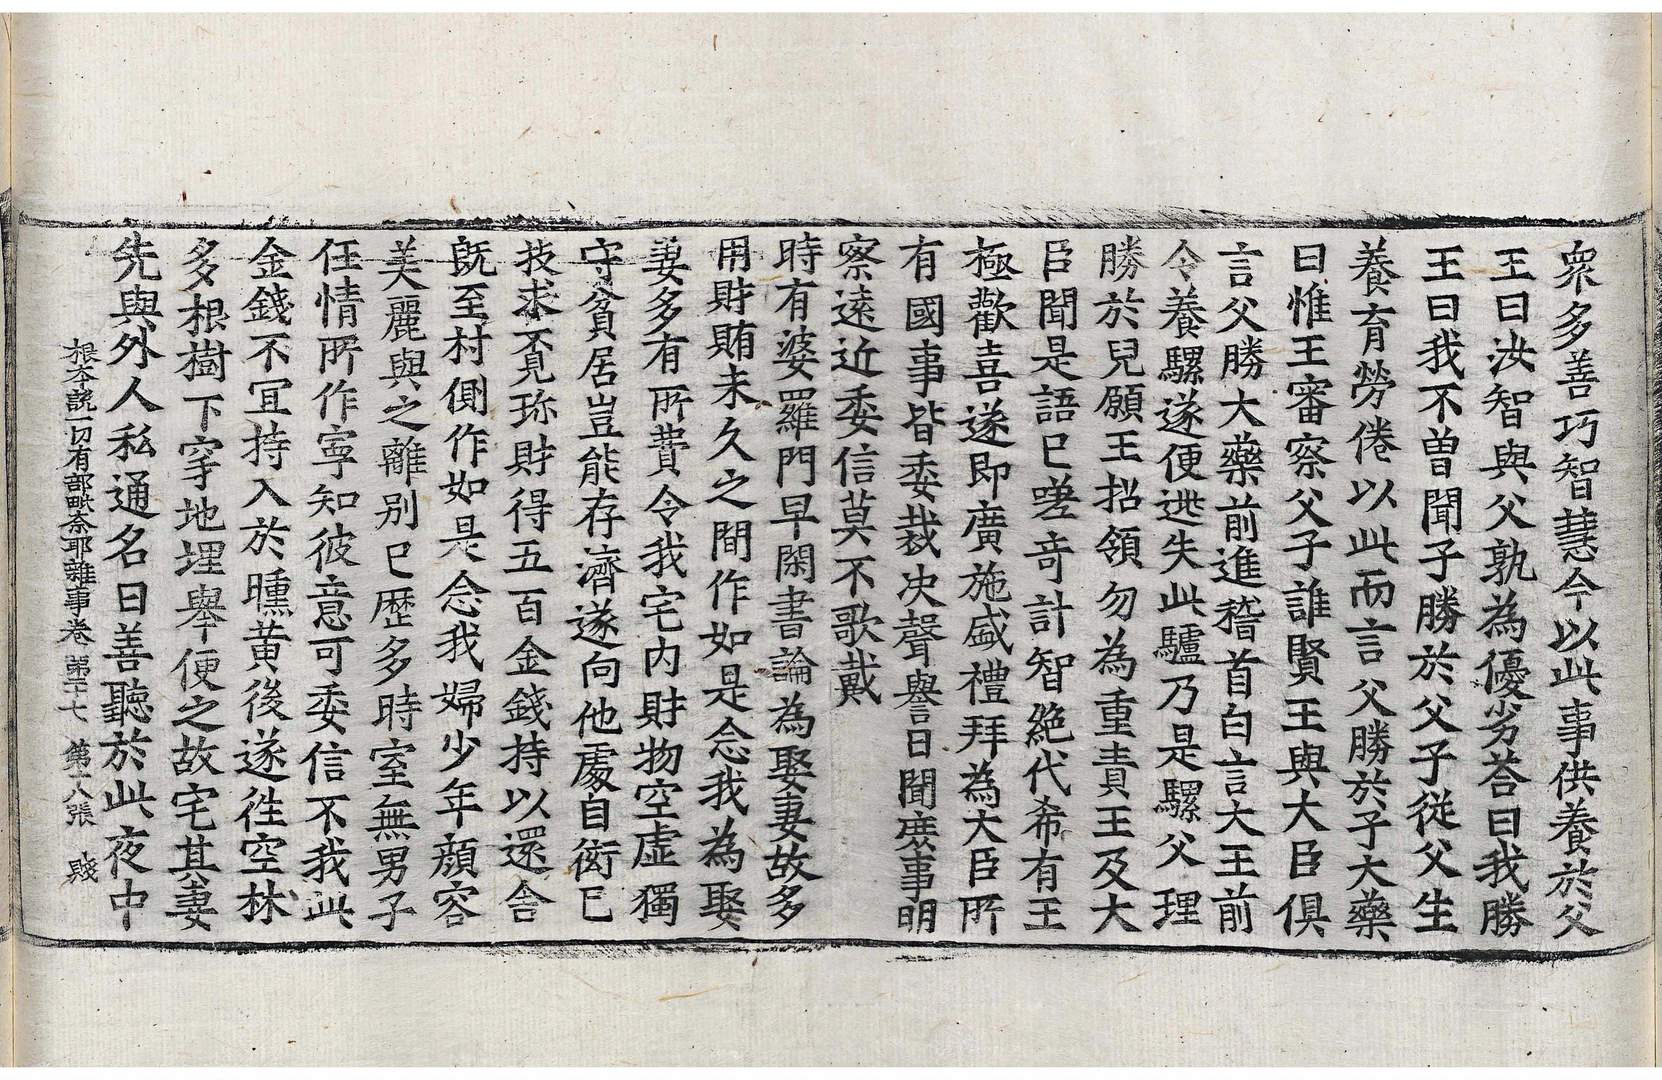 衆多善巧智慧今以此事供養於父
王曰汝智與父孰為優劣荅曰我勝
王曰我不曽聞子勝於父子從父生
養育勞倦以此而言父勝於子大藥
曰惟王審察父子誰賢王與大臣俱
言父勝大藥前進稽首白言大王前
令養騾遂便迯失此驢乃是騾父理
勝於兒願王招領勿為重責王及大
臣聞是語已嗟竒計智絶代希有王
極歡喜遂即廣施盛禮拜為大臣所
有國事皆委裁决聲譽日聞庶事明
察遠近委信莫不歌戴
時有婆羅門早閑書論為娶妻故多
用財賄未久之間作如是念我為娶
妻多有所費令我宅内財物空虚獨
守貧居豈能存濟遂向他處自衒已
技求覓珎財得五百金錢持以還舎
既至村側作如是念我婦少年顔容
美麗與之離别已歴多時室無男子
任情所作寜知彼意可委信不我此
金錢不冝持入於曛黄後遂徃空林
多根樹下穿地埋舉便之故宅其妻
先與外人私通名曰善聽於此夜中
根本說一切有部毗奈耶雜事卷第二十七 第十八張 賤